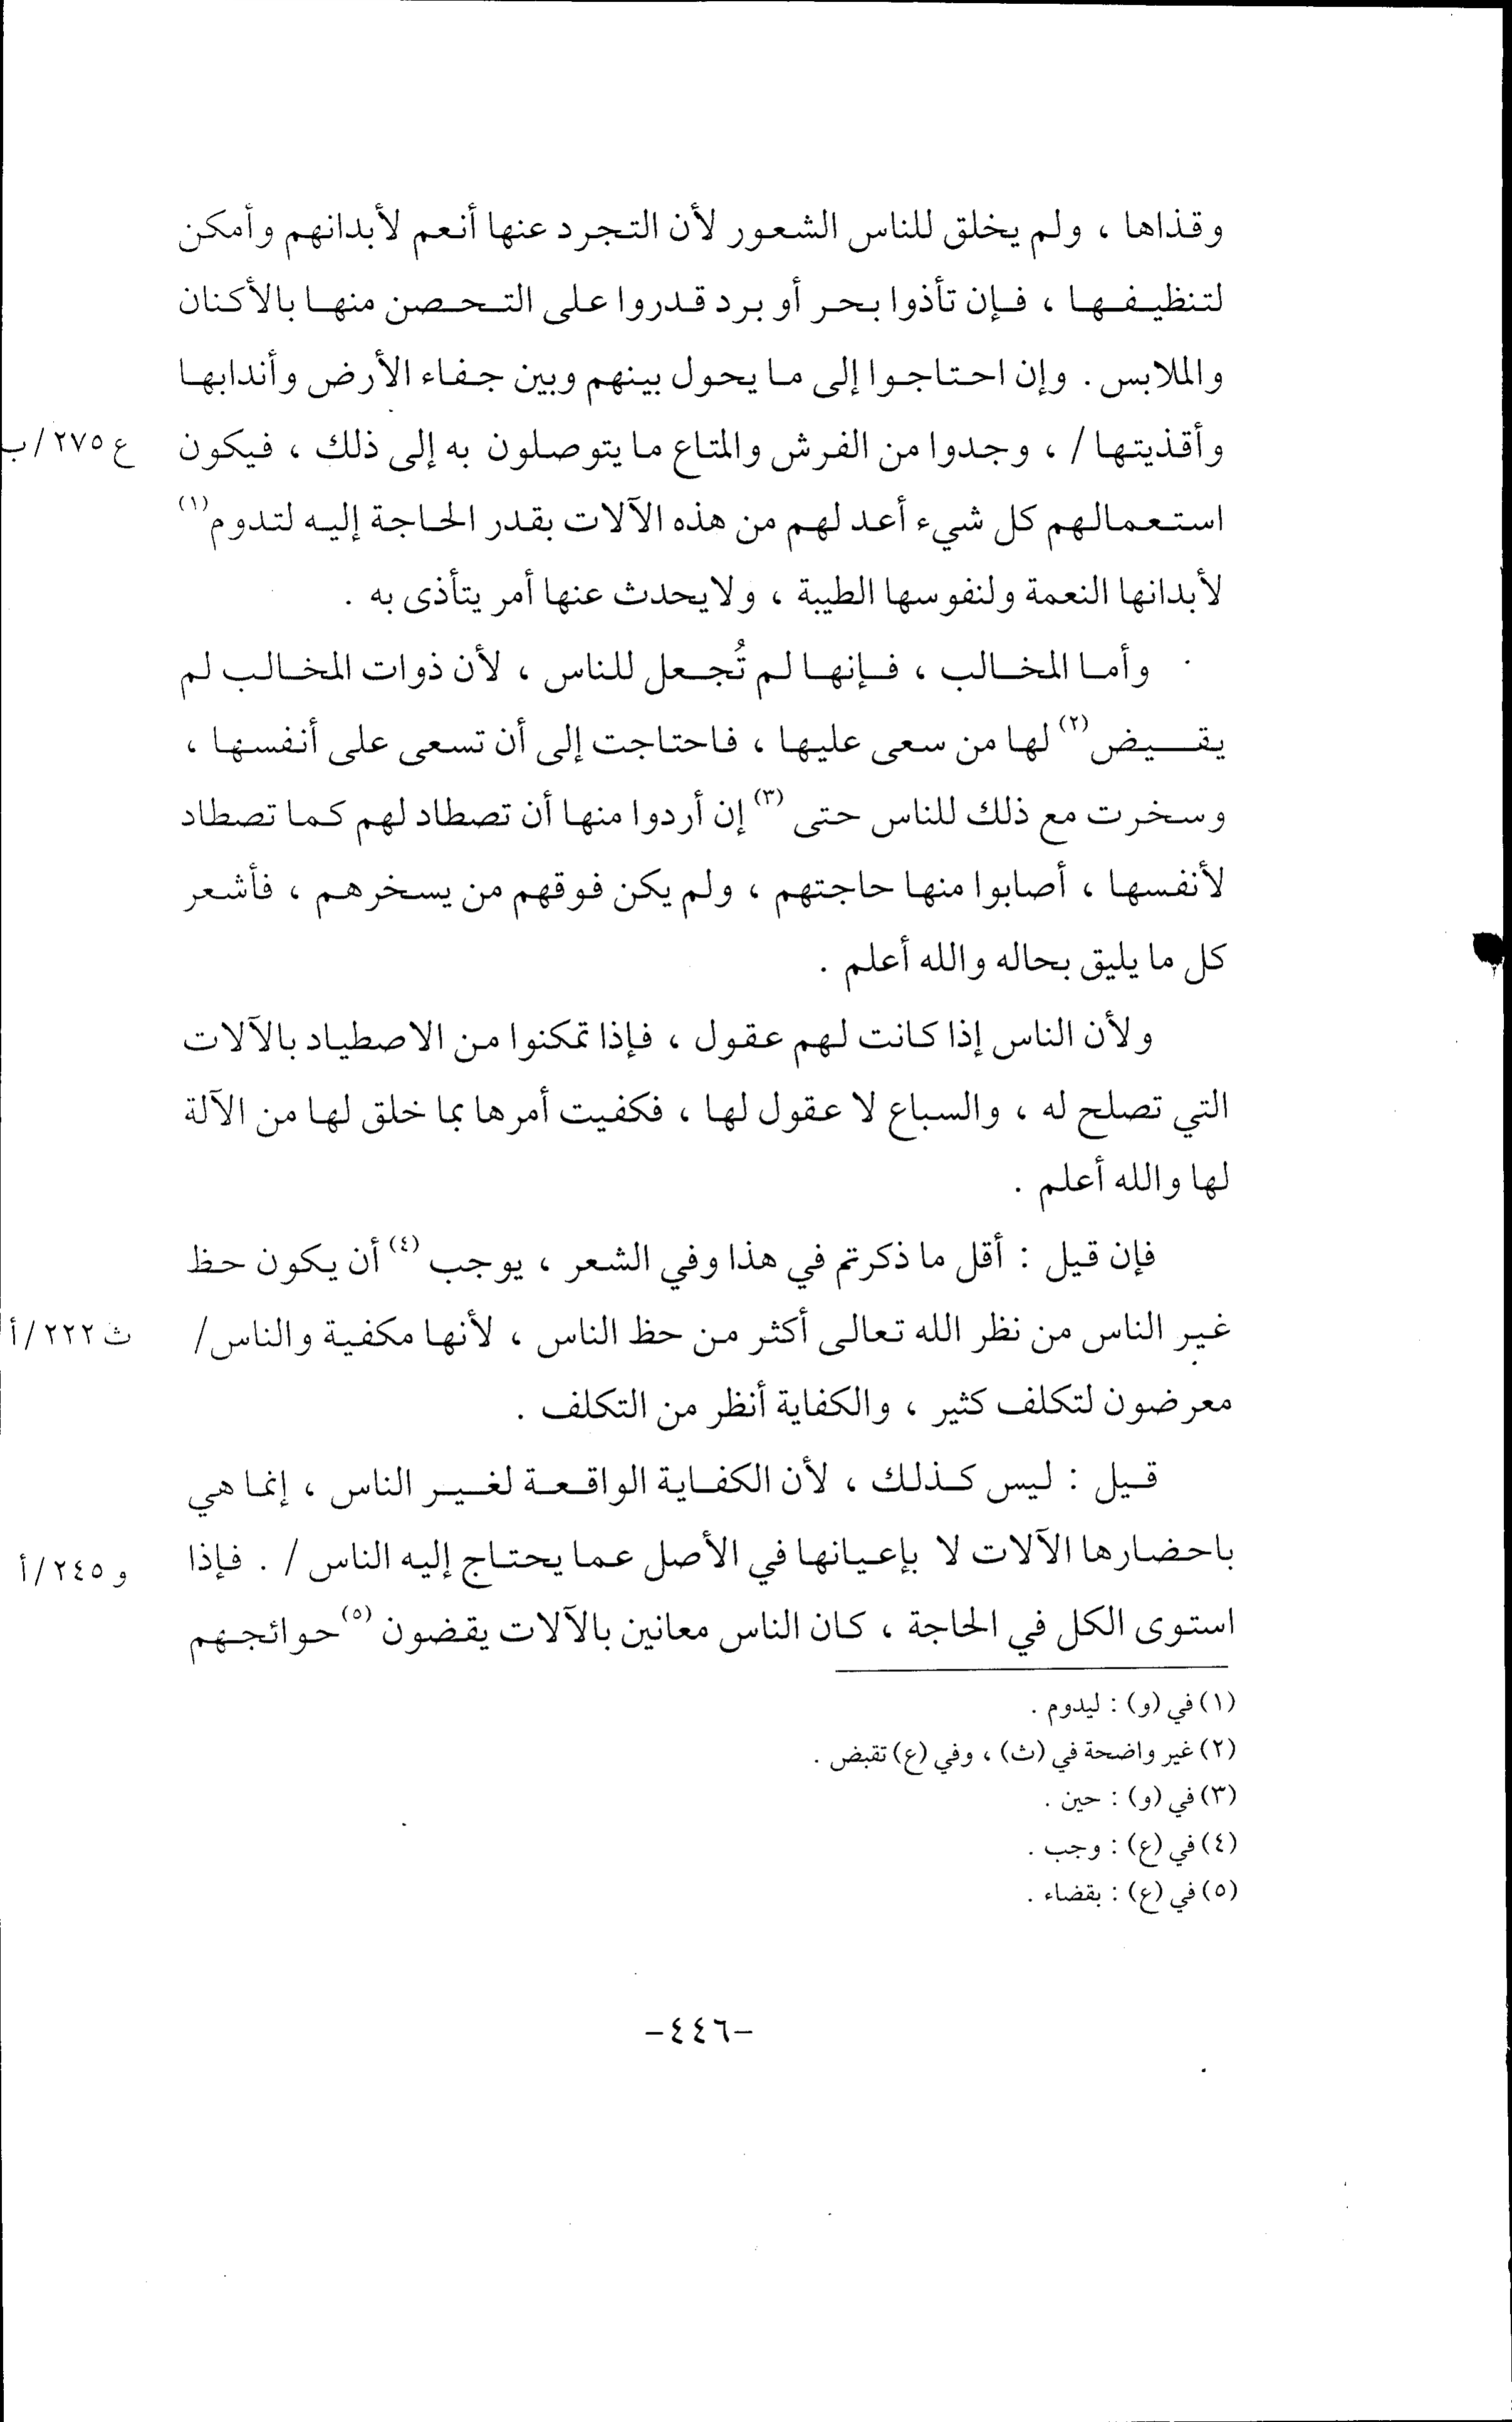 وقذاها ، ولم يخلق للناس الشعور لأن التجرد عنها أنعم لأبدانهم وأمكن
لتنظيفها ، فإن تأذوا بحر أو برد قدروا على التحصن منها بالأكنان
والملابس . وإن احتاجوا إلى ما يحول بينهم وبين جفاء الأرض وأندابها
وأقذيتها / ، وجدوا من الفرش والمتاع ما يتوصلون به إلى ذلك ، فيكون ع ٢٧٥/ب
استعمالهم كل شيء أعد لهم من هذه الآلات بقدر الحاجة إليه لتدوم (١)
لأبدانها النعمة ولنفوسها الطيبة ، ولا يحدث عنها أمر يتأذى به .
وأما المخالب ، فإنها لم تُجعل للناس ، لأن ذوات المخالب لم
يقيض (٢) لها من سعى عليها ، فاحتاجت إلى أن تسعى على أنفسها ،
وسخرت مع ذلك للناس حتى (٣) إن أردوا منها أن تصطاد لهم كما تصطاد
لأنفسها ، أصابوا منها حاجتهم ، ولم يكن فوقهم من يسخرهم ، فأشعر
كل ما يليق بحاله والله أعلم .
ولأن الناس إذا كانت لهم عقول ، فإذا تمكنوا من الاصطياد بالآلات
التي تصلح له ، والسباع لا عقول لها ، فكفيت أمرها بما خلق لها من الآلة
لها والله أعلم .
فإن قيل : أقل ما ذكرتم في هذا وفي الشعر ، يوجب (٤) أن يكون حظ
غير الناس من نظر الله تعالى أكثر من حظ الناس ، لأنها مكفية والناس/ ث ٢٢٢/أ
معرضون لتكلف كثير ، والكفاية أنظر من التكلف .
قيل : ليس كذلك ، لأن الكفاية الواقعة لغير الناس ، إنما هي
باحضارها الآلات لا بإعيانها في الأصل عما يحتاج إليه الناس / . فإذا و ٢٤٥/أ
استوى الكل في الحاجة ، كان الناس معانين بالآلات يقضون (٥) حوائجهم
(١) في (و) : ليدوم .
(٢) غير واضحة في (ث) ، وفي (ع) تقبض .
(٣) في (و) : حين .
(٤) في (ع) : وجب .
(٥) في (ع) : بقضاء .
-٤٤٦-